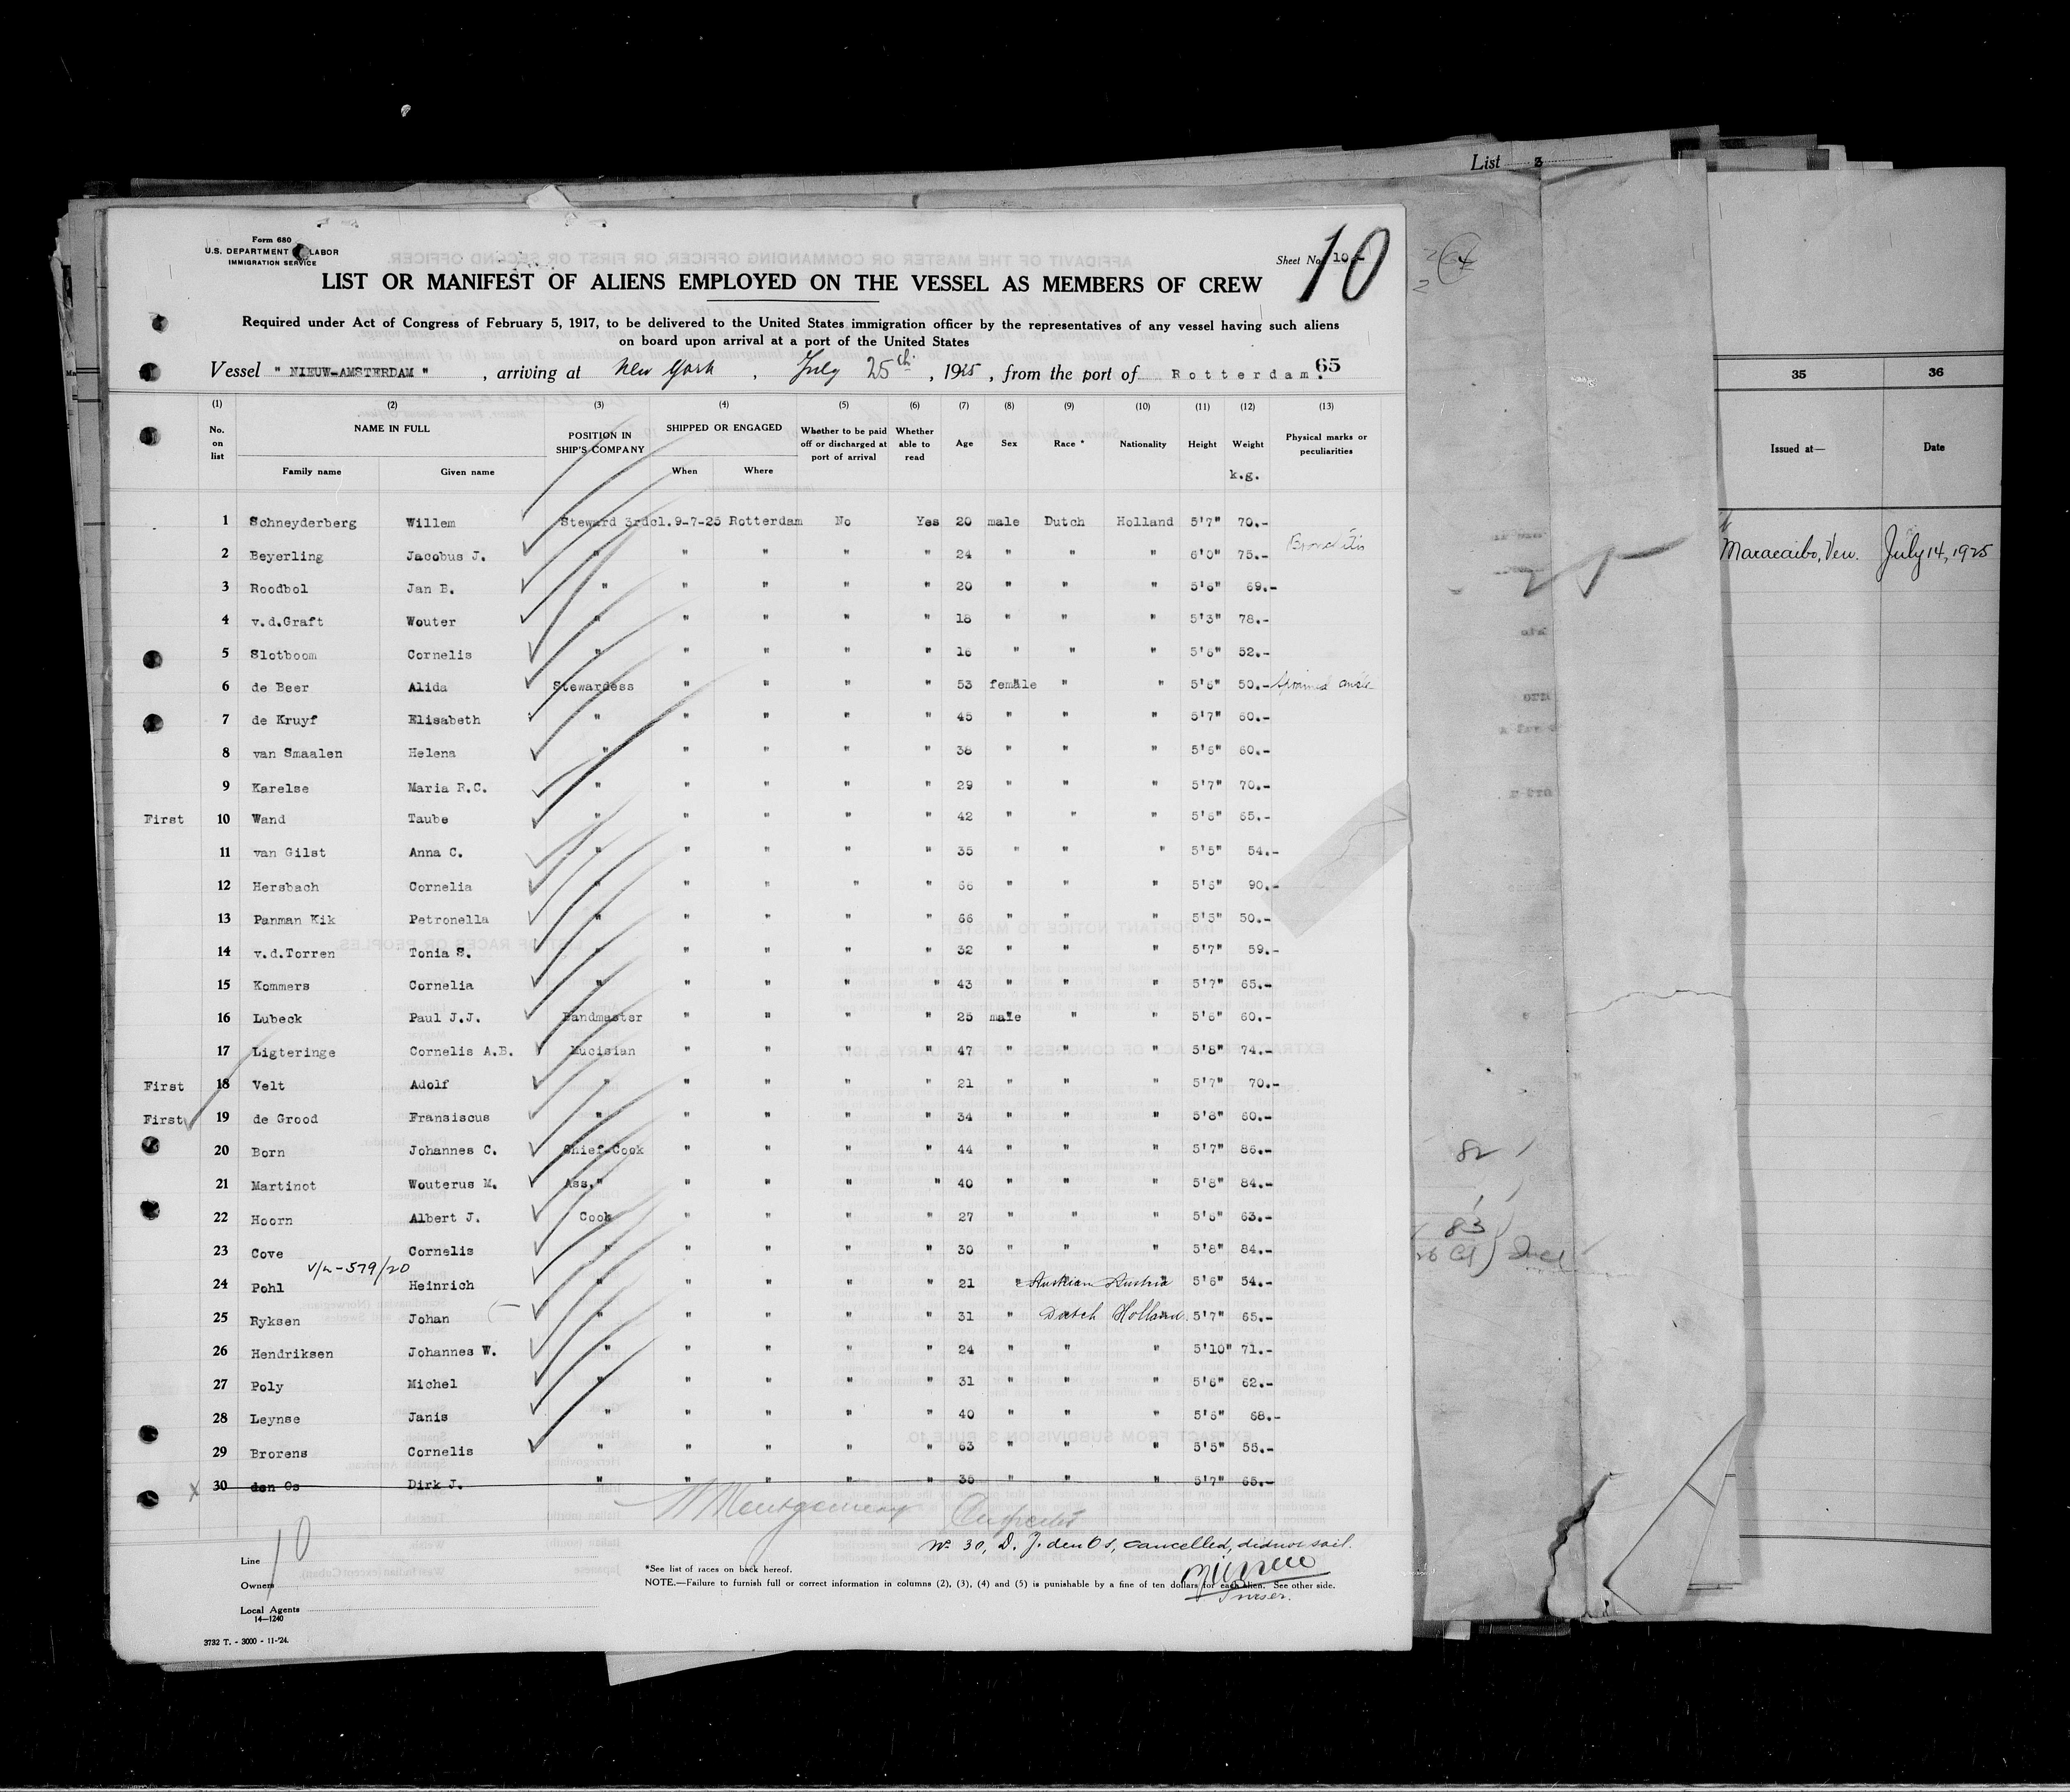 List 3
Form 680
U.S. DEPARTMENT LABOR
IMMIGRATION SERVICE
Sheet No. 10
10
LIST OR MANIFEST OF ALIENS EMPLOYED ON THE VESSEL AS MEMBERS OF CREW
Required under Act of Congress of February 5, 1917, to be delivered to the United States immigration officer by the representatives of any vessel having such aliens
on board upon arrival at a port of the United States
65
Vessel " NIEUW-AMSTERDAM " , arriving at New York , July 25th , 1925 , from the port of Rotterdam.
(1) (2) (3) (4) (5) (6) (7) (8) (9) (10) (11) (12) (13)
No. on list NAME IN FULL Family name Given name POSITION IN SHIP'S COMPANY SHIPPED OR ENGAGED When Where Whether to be paid off or discharged at port of arrival Whether able to read Age Sex Race * Nationality Height Weight k.g. Physical marks or peculiarities
1 Schneyderberg Willem Steward 3rdcl. 9-7-25 Rotterdam No Yes 20 male Dutch Holland 5'7" 70.-
2 Beyerling Jacobus J. " " " " " 24 " " " 6'0" 75.- Bronchitis
3 Roodbol Jan B. " " " " " 20 " " " 5'6" 69.-
4 v.d.Graft Wouter " " " " " 18 " " " 5'3" 78.-
5 Slotboom Cornelis " " " " " 16 " " " 5'6" 52.-
6 de Beer Alida Stewardess " " " " 53 female " " 5'6" 50.- Sprained ankle
7 de Kruyf Elisabeth " " " " " 45 " " " 5'7" 60.-
8 van Smaalen Helena " " " " " 36 " " " 5'5" 60.-
9 Karelse Maria R.C. " " " " " 29 " " " 5'7" 70.-
First 10 Wand Taube " " " " " 42 " " " 5'6" 65.-
11 van Gilst Anna C. " " " " " 35 " " " 5'5" 54.-
12 Hersbach Cornelia " " " " " 66 " " " 5'6" 90.-
13 Panman Kik Petronella " " " " " 66 " " " 5'5" 50.-
14 v.d.Torren Tonia S. " " " " " 32 " " " 5'7" 59.-
15 Kommers Cornelia " " " " " 43 " " " 5'7" 65.-
16 Lubeck Paul J.J. Bandmaster " " " " 25 male " " 5'6" 60.-
17 Ligteringe Cornelis A.B. Mucisian " " " " 47 " " " 5'8" 74.-
First 18 Velt Adolf " " " " " 21 " " " 5'7" 70.-
First 19 de Grood Fransiscus " " " " " 34 " " " 5'8" 60.-
20 Born Johannes C. Chief-Cook " " " " 44 " " " 5'7" 86.-
21 Martinot Wouterus M. Ass. " " " " " 40 " " " 5'8" 84.-
22 Hoorn Albert J. Cook " " " " 27 " " " 5'6" 63.-
23 Cove Cornelis " " " " " 30 " " " 5'8" 84.-
V/L-579/20
24 Pohl Heinrich " " " " " 21 " Austrian Austria 5'6" 54.-
25 Ryksen Johan " " " " " 31 " Dutch Holland 5'7" 65.-
26 Hendriksen Johannes W. " " " " " 24 " " " 5'10" 71.-
27 Poly Michel " " " " " 31 " " " 5'6" 62.-
28 Leynse Janis " " " " " 40 " " " 5'6" 68.-
29 Brorens Cornelis " " " " " 63 " " " 5'5" 55.-
X 30 den Os Dirk J. " " " " " 36 " " " 5'7" 65.-
Montgomery Inspector
No 30, D. J. den Os, cancelled, did not sail.
Purser.
10
Line
Owners
Local Agents
14—1240
*See list of races on back hereof.
NOTE.—Failure to furnish full or correct information in columns (2), (3), (4) and (5) is punishable by a fine of ten dollars for each alien. See other side.
3732 T. - 3000 - 11-'24.
35 36
Issued at— Date
Maracaibo, Ven. July 14, 1925
82
83